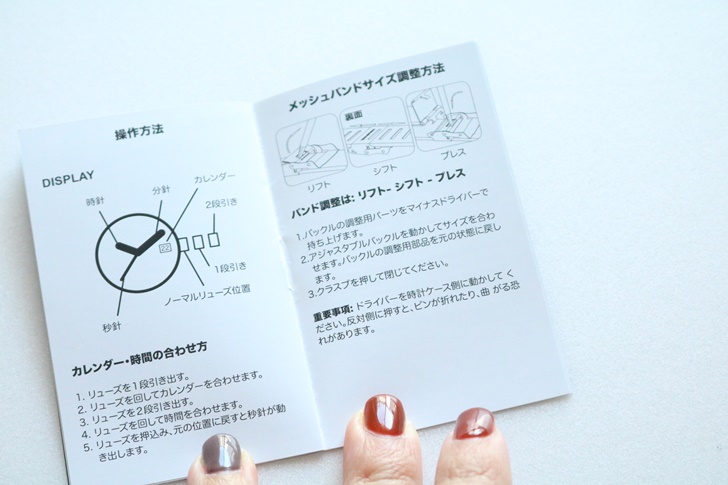 操作方法
DISPLAY
時針
分針
カレンダー
2段引き
22
1段引き
ノーマルリューズ位置
秒針
カレンダー・時間の合わせ方
1. リューズを1段引き出す。
2. リューズを回してカレンダーを合わせます。
3. リューズを2段引き出す。
4. リューズを回して時間を合わせます。
5. リューズを押込み、元の位置に戻すと秒針が動
き出します。
メッシュバンドサイズ調整方法
裏面
リフト
シフト
プレス
バンド調整は: リフト- シフト - プレス
1.バックルの調整用パーツをマイナスドライバーで
持ち上げます。
2.アジャスタブルバックルを動かしてサイズを合わ
せます。バックルの調整用部品を元の状態に戻し
ます。
3.クラスプを押して閉じてください。
重要事項: ドライバーを時計ケース側に動かして く
ださい。反対側に押すと、ピンが折れたり、曲 がる恐
れがあります。